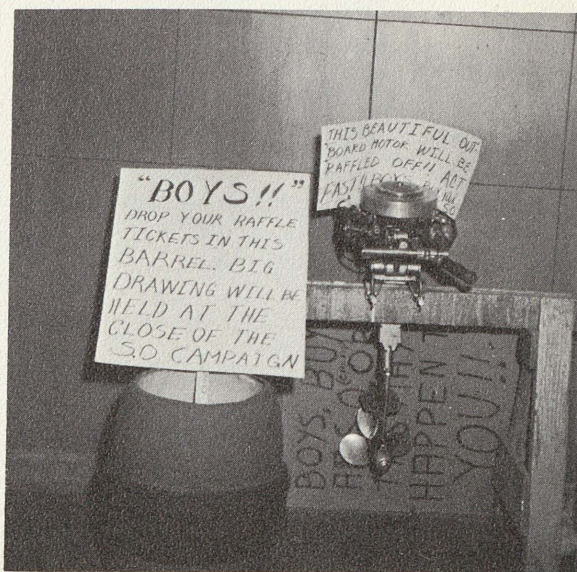 "BOYS!!"
DROP YOUR RAFFLE
TICKETS IN THIS
BARREL. BIG
DRAWING WILL BE
HELD AT THE
CLOSE OF THE
S.O CAMPAIGN
THIS BEAUTIFUL OUT
BOARD MOTOR WILL BE
RAFFLED OFF!! ACT
FAST!! BOYS
SO
BOYS, BOY
HAPPEN T
YOU!!